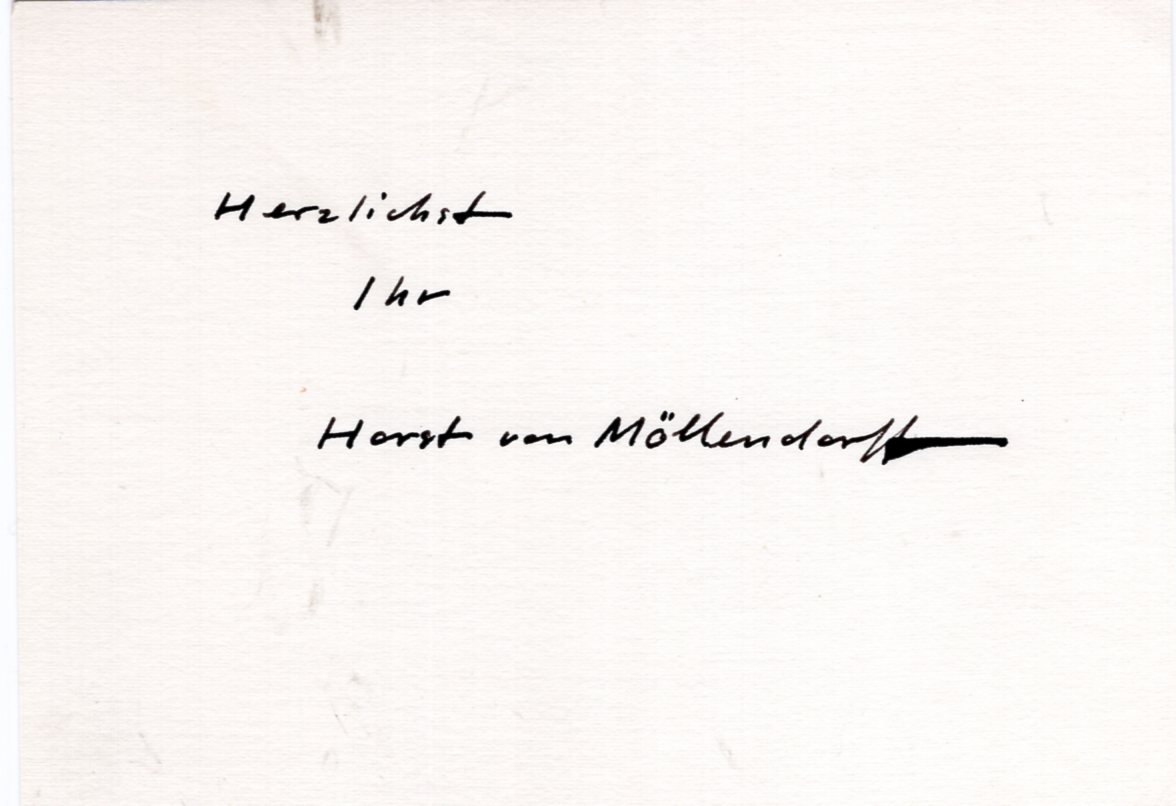 Herzlichst
Ihr
Horst von Möllendorff